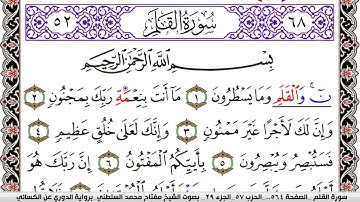 ٥٢ سُورَةُ القَلَمِ ٦٨
بِسْمِ اللَّهِ الرَّحْمَٰنِ الرَّحِيمِ
نٓ ۚ وَالْقَلَمِ وَمَا يَسْطُرُونَ ١ مَا أَنتَ بِنِعْمَةِ رَبِّكَ بِمَجْنُونٍ ٢
وَإِنَّ لَكَ لَأَجْرًا غَيْرَ مَمْنُونٍ ٣ وَإِنَّكَ لَعَلَىٰ خُلُقٍ عَظِيمٍ ٤
فَسَتُبْصِرُ وَيُبْصِرُونَ ٥ بِأَييِّكُمُ الْمَفْتُونُ ٦ إِنَّ رَبَّكَ هُوَ
سورة القلم الصفحة ٥٦٤... الحزب ٥٧ الجزء ٢٩ بصوت الشيخ مفتاح محمد السلطني برواية الدوري عن الكسائي